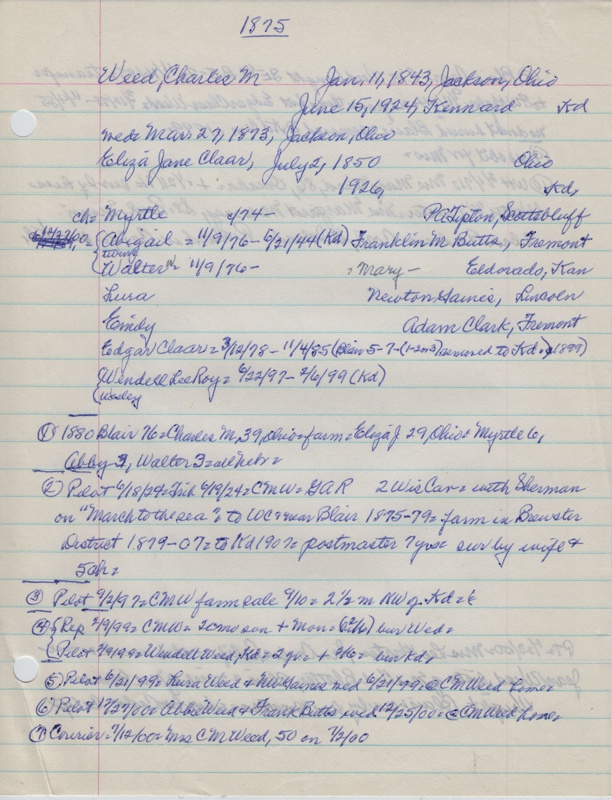 1875
Weed, Charles M Jan. 11, 1843, Jackson, Ohio
June 15, 1924, Kennard Kd
med= Mar. 27, 1873, Jackson, Ohio
Eliza Jane Claar, July 2, 1850 Ohio
1926, Kd,
ch= Myrtle /74- P.A. Tipton, Scottsbluff
12/25/00= { Abigail = 11/9/76 - 5/21/44 (Kd) Franklin M Butts, Fremont
twins
Walter = 11/9/76 - , Mary - Eldorado, Kan
Lura Newton Gaines, Lincoln
Emily Adam Clark, Fremont
Edgar Claar = 3/12/78 - 11/4/85 (Blair 5-7- removed to Kd. 1899)
{ Wendell LeeRoy = 4/22/97 - 2/6/99 (Kd)
(Wesley
① 1880 Blair 76= Charles M, 39, Ohio= farm= Eliza J 29, Ohio= Myrtle 6,
Abby 3, Walter 3= all Nebr=
② Pilot 6/18/24= Trib 6/19/24= CMW= GAR 2 Wis Cav= with Sherman
on "March to the sea"= to WC= near Blair 1875-79= farm in Brewster
District 1879-07= to Kd 1907= postmaster 7 yrs= sur by wife &
5 ch=
③ Pilot 9/2/97= CMW farm sale 9/10= 2½ m NW of Kd=
④ { Rep 2/9/99= CMW= 20 mo son + Mon= (2/6) bur Wed=
{ Pilot 2/9/99= Wendell Weed, Kd= 2 yr= + 2/6= bur Kd=
⑤ Pilot 6/21/99= Lura Weed & NW Gaines med 6/21/99= @ CM Weed home=
⑥ Pilot 12/27/00= Abbie Weed & Frank Butts med 12/25/00= @ CM Weed home=
⑦ Courier= 7/12/00= Mrs CM Weed, 50 on 7/2/00